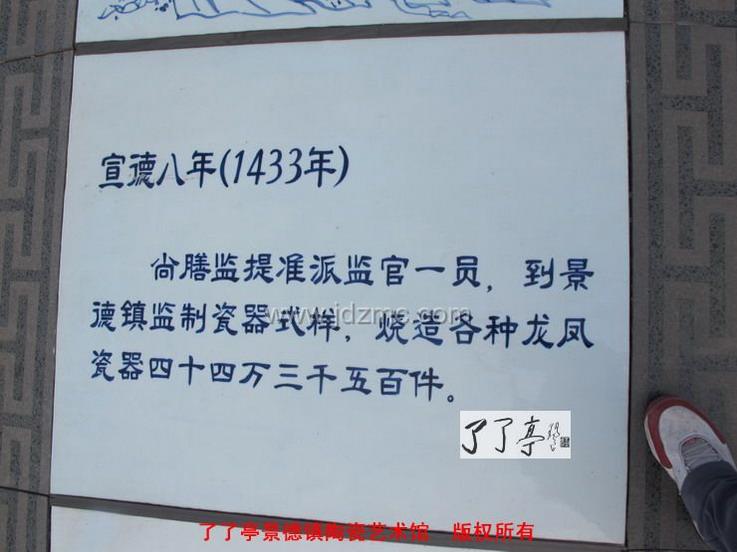 宣德八年(1433年)
尚膳监提准派监官一员，到景
德镇监制瓷器式样，烧造各种龙凤
瓷器四十四万三千五百件。
www.jdzmc.com
了了亭
了了亭景德镇陶瓷艺术馆 版权所有